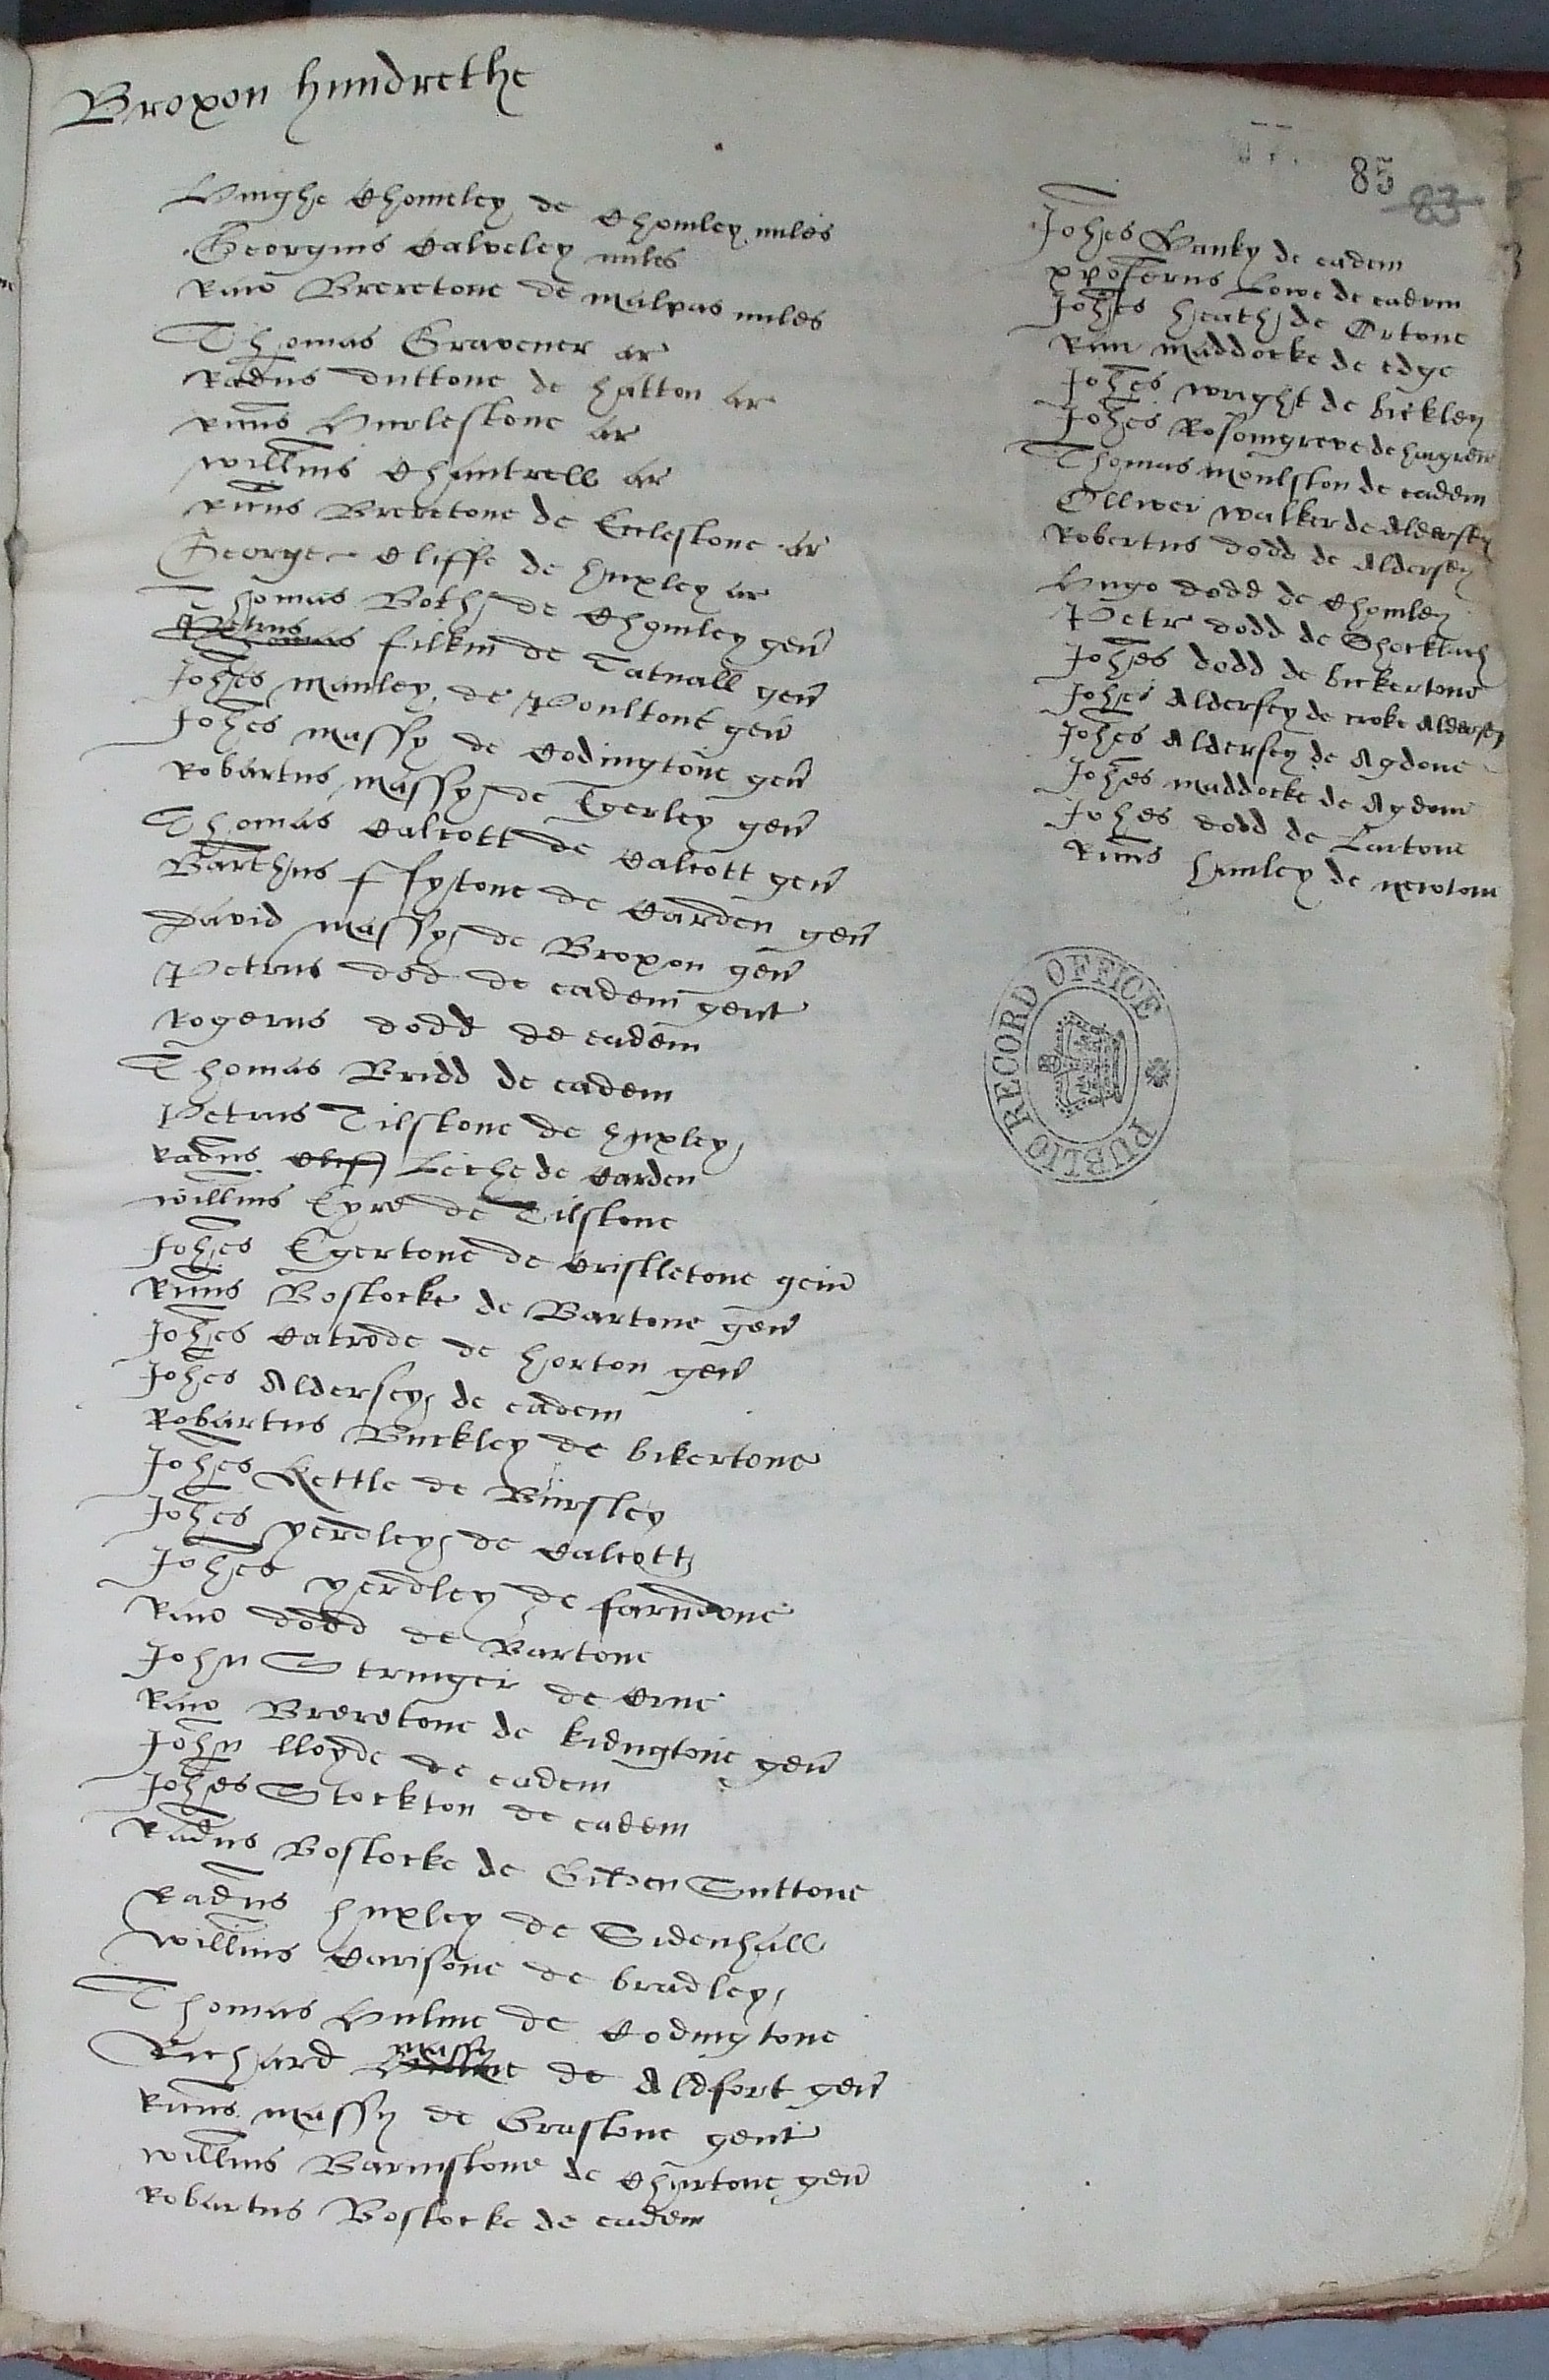 Broxon hundrethe
85
83
Hughe Chomeley de Chomley miles
Georgius Calveley miles
Ricus Breretone de malpas miles
Thomas Gravener ar
Radus duttone de hatton ar
Ricus Hurlestone ar
willms Chantrell ar
Ricus Breretone de Ecclestone ar
George Cliffe de huxley ar
Thomas Both de Chomley gen
Petrus
Thomas filkin de Tatnall gen
Johes manley de Poultone gen
Johes massy de Codingtone gen
Robartus massy de Egerley gen
Thomas Calcott de Calcott gen
Barthus ffytone de Carden gen
david massy de Broxon gen
Petrus dod de eadem gent
Rogerus dodd de eadem
Thomas Bridd de eadem
Petrus Tilstone de huxley
Radus Cliff Leche de Carden
willms Eyre de Tilstone
Johes Egertone de Cristletone gen
Ricus Bostocke de Bartone gen
Johes Catrode de horton gen
Johes Aldersey de eadem
Robartus Buckley de bikertone
Johes Kettle de Bursley
Johes yerdley de Calcott
Johes yerdley de farndone
Ricus dodd de Bartone
John Stringer de Crue
Ricus Breretone de kidngtone gen
John lloyde de eadem
Johes Stockton de eadem
Radus Bostocke de Gilden Suttone
Radus huxley de Sidenhall
willms Carisone de bradley
Thomas Hulme de Codingtone
massy
Richard de Aldfort gen
Ricus massy de Graftone gent
willms Barnstone de Churtone gen
Robartus Bostocke de eadem
Johes Hanky de eadem
Lowe de eadem
Johes heath de Ortone
Ricus maddocke de edge
Johes wright de bickley
Johes Rosomgreve de hargreve
Thomas Moulston de eadem
Olliver walker de Aldersey
Robertus dodd de Aldersey
Hugo dodd de Chomley
Petr dodd de Shocklach
Johes dodd de bickertone
Johes Aldersey de croke Aldersey
Johes Aldersey de Agdone
Johes maddocke de Agdone
Johes dodd de Lartone
Ricus hanley de newtone
PUBLIC RECORD OFFICE